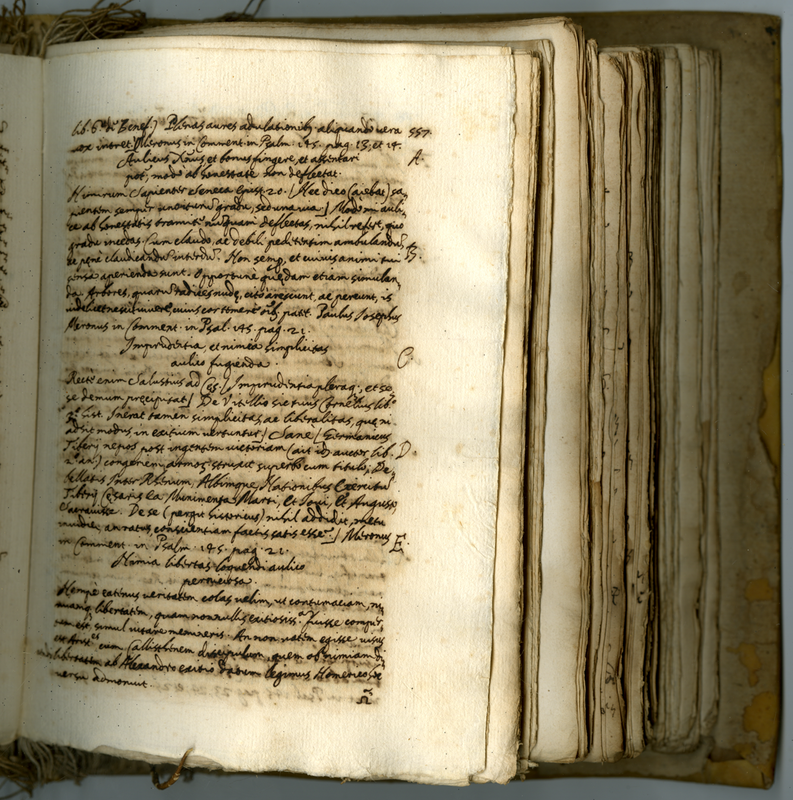 lib. 6. de Benef.) Plenas aures adulationibꝫ aliquando vera 557.
vox intret. Meronus in Comment. in Psalm. 145. pag. 13. et 14.
Aulicus Xnus et bonus fingere, et assentari A.
pot, modo ab honestate non deflectat.
Nimirum sapienter Seneca Epist. 20. / Nec dico (aiebat) sa-
pientem semper uno iturū gradu, sed una via.] Modo mi auli-
ce ab honestatis tramite nusquam deflectas, nihil refert, quo
gradu incedas. Cum claudo, ac debili pedetentim ambulandū,
ac penè claudicandū interdū. Non semp, et cuiuis animi tui B.
sensa aperienda sunt. Opportunè quędam etiam simulan-
da. Arbores, quarū radices nudę, cito arescunt, ac pereunt, is
videlicet nescit vivere, cuius cor temerè oibꝫ patet. Paulus Iosephus
Meronus in Comment. in Psal. 145. pag. 21.
Imprudentia, et nimia simplicitas C.
aulico fugienda.
Rectè enim Salustius ad Cęs. / Imprudentia pleraq, et se
se demum pręcipitat / De Vitellio sic tuus Cornelius lib.
3. hist. Inerat tamen simplicitas, ac liberalitas, quę ni
adsit modus in exitium vertuntur / Sane / Germanicus
Tiberij nepos post ingentem victoriam (ait id auctor lib. D.
2. an.) congeriem armoꝝ struxit superbo cum titulo, De-
bellatis Inter Rhenum, Albimque, Nationibus Exercitū
Tiberij Cęsaris Ea Munimenta Marti, Et Ioui, Et Augusto
Sacrauisse. De se (pergit historicus) nihil addidit, metu
inuidię, an ratus, conscientiam facti satis esse.] Meronus E.
in Comment. in Psalm. 145. pag. 21.
Nimia libertas loquendi aulico
perniciosa.
Nempe eatenus veritatem colas velim, ut contumaciam, ni-
miamq libertatem, quam nonnullis exitiosis.ᵃ fuisse comper-
tum est, simul vitare memineris. An non vatem egisse visus
est Arist.ᵉˢ cum Callisthenem discipulum, quem ob nimiam di-
libertatem ab Alexandro exitio datum legimus Homerico
versu admonuit.